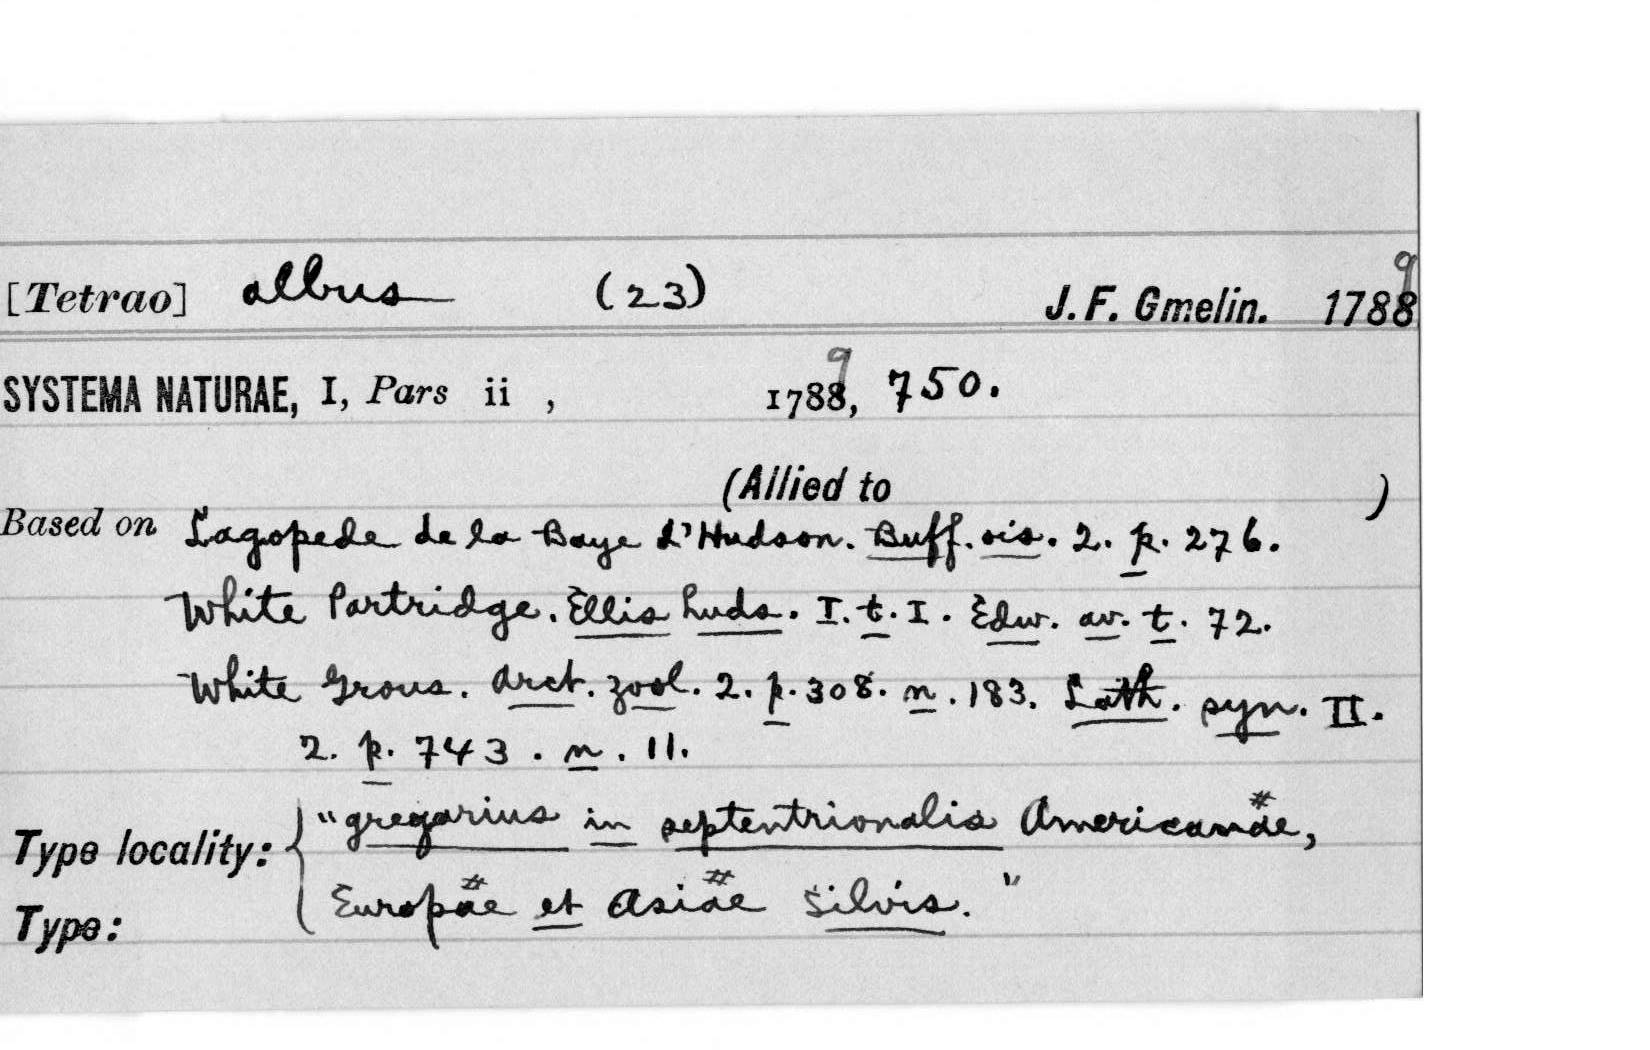 [Tetrao] albus (23) J. F. Gmelin. 17889
SYSTEMA NATURAE, I, Pars ii , 17889, 750.
(Allied to )
Based on Lagopede de la Baye d'Hudson. Buff. ois. 2. p. 276.
White Partridge. Ellis huds. I. t. I. Edw. av. t. 72.
White Grous. Arct. zool. 2. p. 308. n. 183. Lath. syn. II.
2. p. 743. n. 11.
Type locality: { "gregarius in septentrionalis Americanae,
Europae et Asiae silvis."
Type: